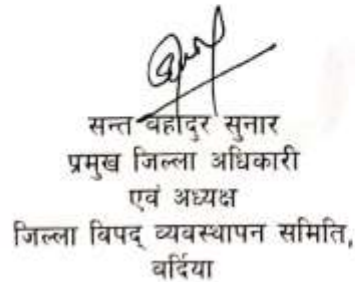 सन्त बहादुर सुनार
प्रमुख जिल्ला अधिकारी
एवं अध्यक्ष
जिल्ला विपद् व्यवस्थापन समिति,
बर्दिया